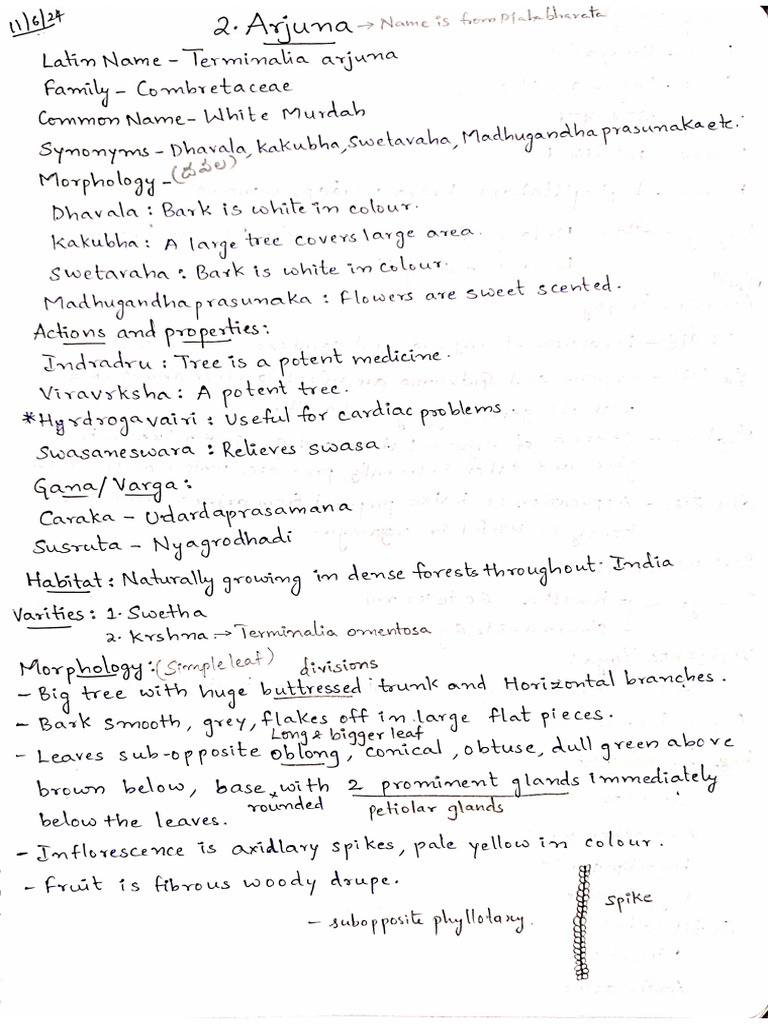 11/6/24
2. Arjuna → Name is from Mahabharata
Latin Name - Terminalia arjuna
Family - Combretaceae
Common Name - White Murdah
Synonyms - Dhavala, Kakubha, Swetavaha, Madhugandhaprasunaka etc.
Morphology - (ధవల)
Dhavala : Bark is white in colour.
Kakubha : A large tree covers large area.
Swetavaha : Bark is white in colour.
Madhugandhaprasunaka : Flowers are sweet scented.
Actions and properties :
Indradru : Tree is a potent medicine.
Viravrksha : A potent tree.
*Hyrdrogavairi : Useful for cardiac problems.
Swasaneswara : Relieves swasa.
Gana/Varga :
Caraka - Udardaprasamana
Susruta - Nyagrodhadi
Habitat : Naturally growing in dense forests throughout India
Varities : 1. Swetha
2. Krshna → Terminalia omentosa
Morphology : (Simple leaf) divisions
- Big tree with huge buttressed trunk and Horizontal branches.
- Bark smooth, grey, flakes off in large flat pieces.
Long & bigger leaf
- Leaves sub-opposite oblong, conical, obtuse, dull green above
brown below, base with 2 prominent glands immediately
rounded petiolar glands
below the leaves.
- Inflorescence is axidllary spikes, pale yellow in colour.
- Fruit is fibrous woody drupe.
spike
- subopposite phyllotaxy.